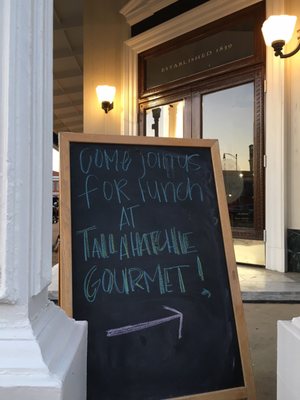 ESTABLISHED 1839
COME JOIN US
for lunch
AT
TALLAHATCHIE
GOURMET!